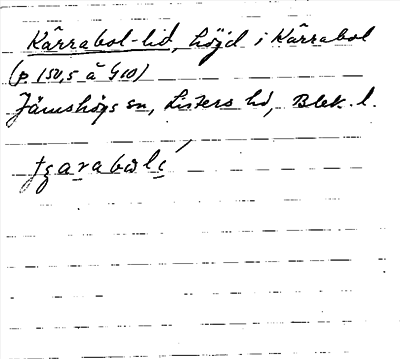 Kärrabol-lid, höjd i Kärrabol
(p 150,5 å G10)
Jämshögs sn, Listers hd, Blek. l.